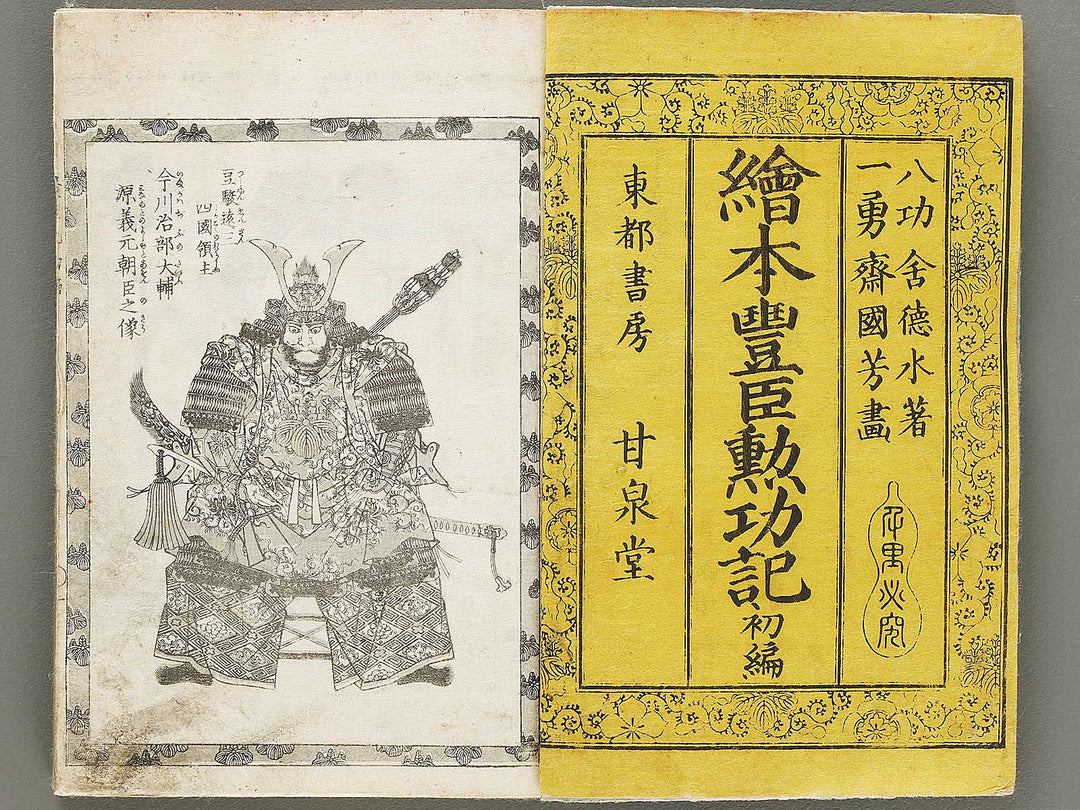 八功舍德水著
一勇齋國芳畫
千里必究
繪本豐臣勲功記初編
東都書房　甘泉堂
豆駿遠三
四國領主
今川治部大輔
源義元朝臣之像